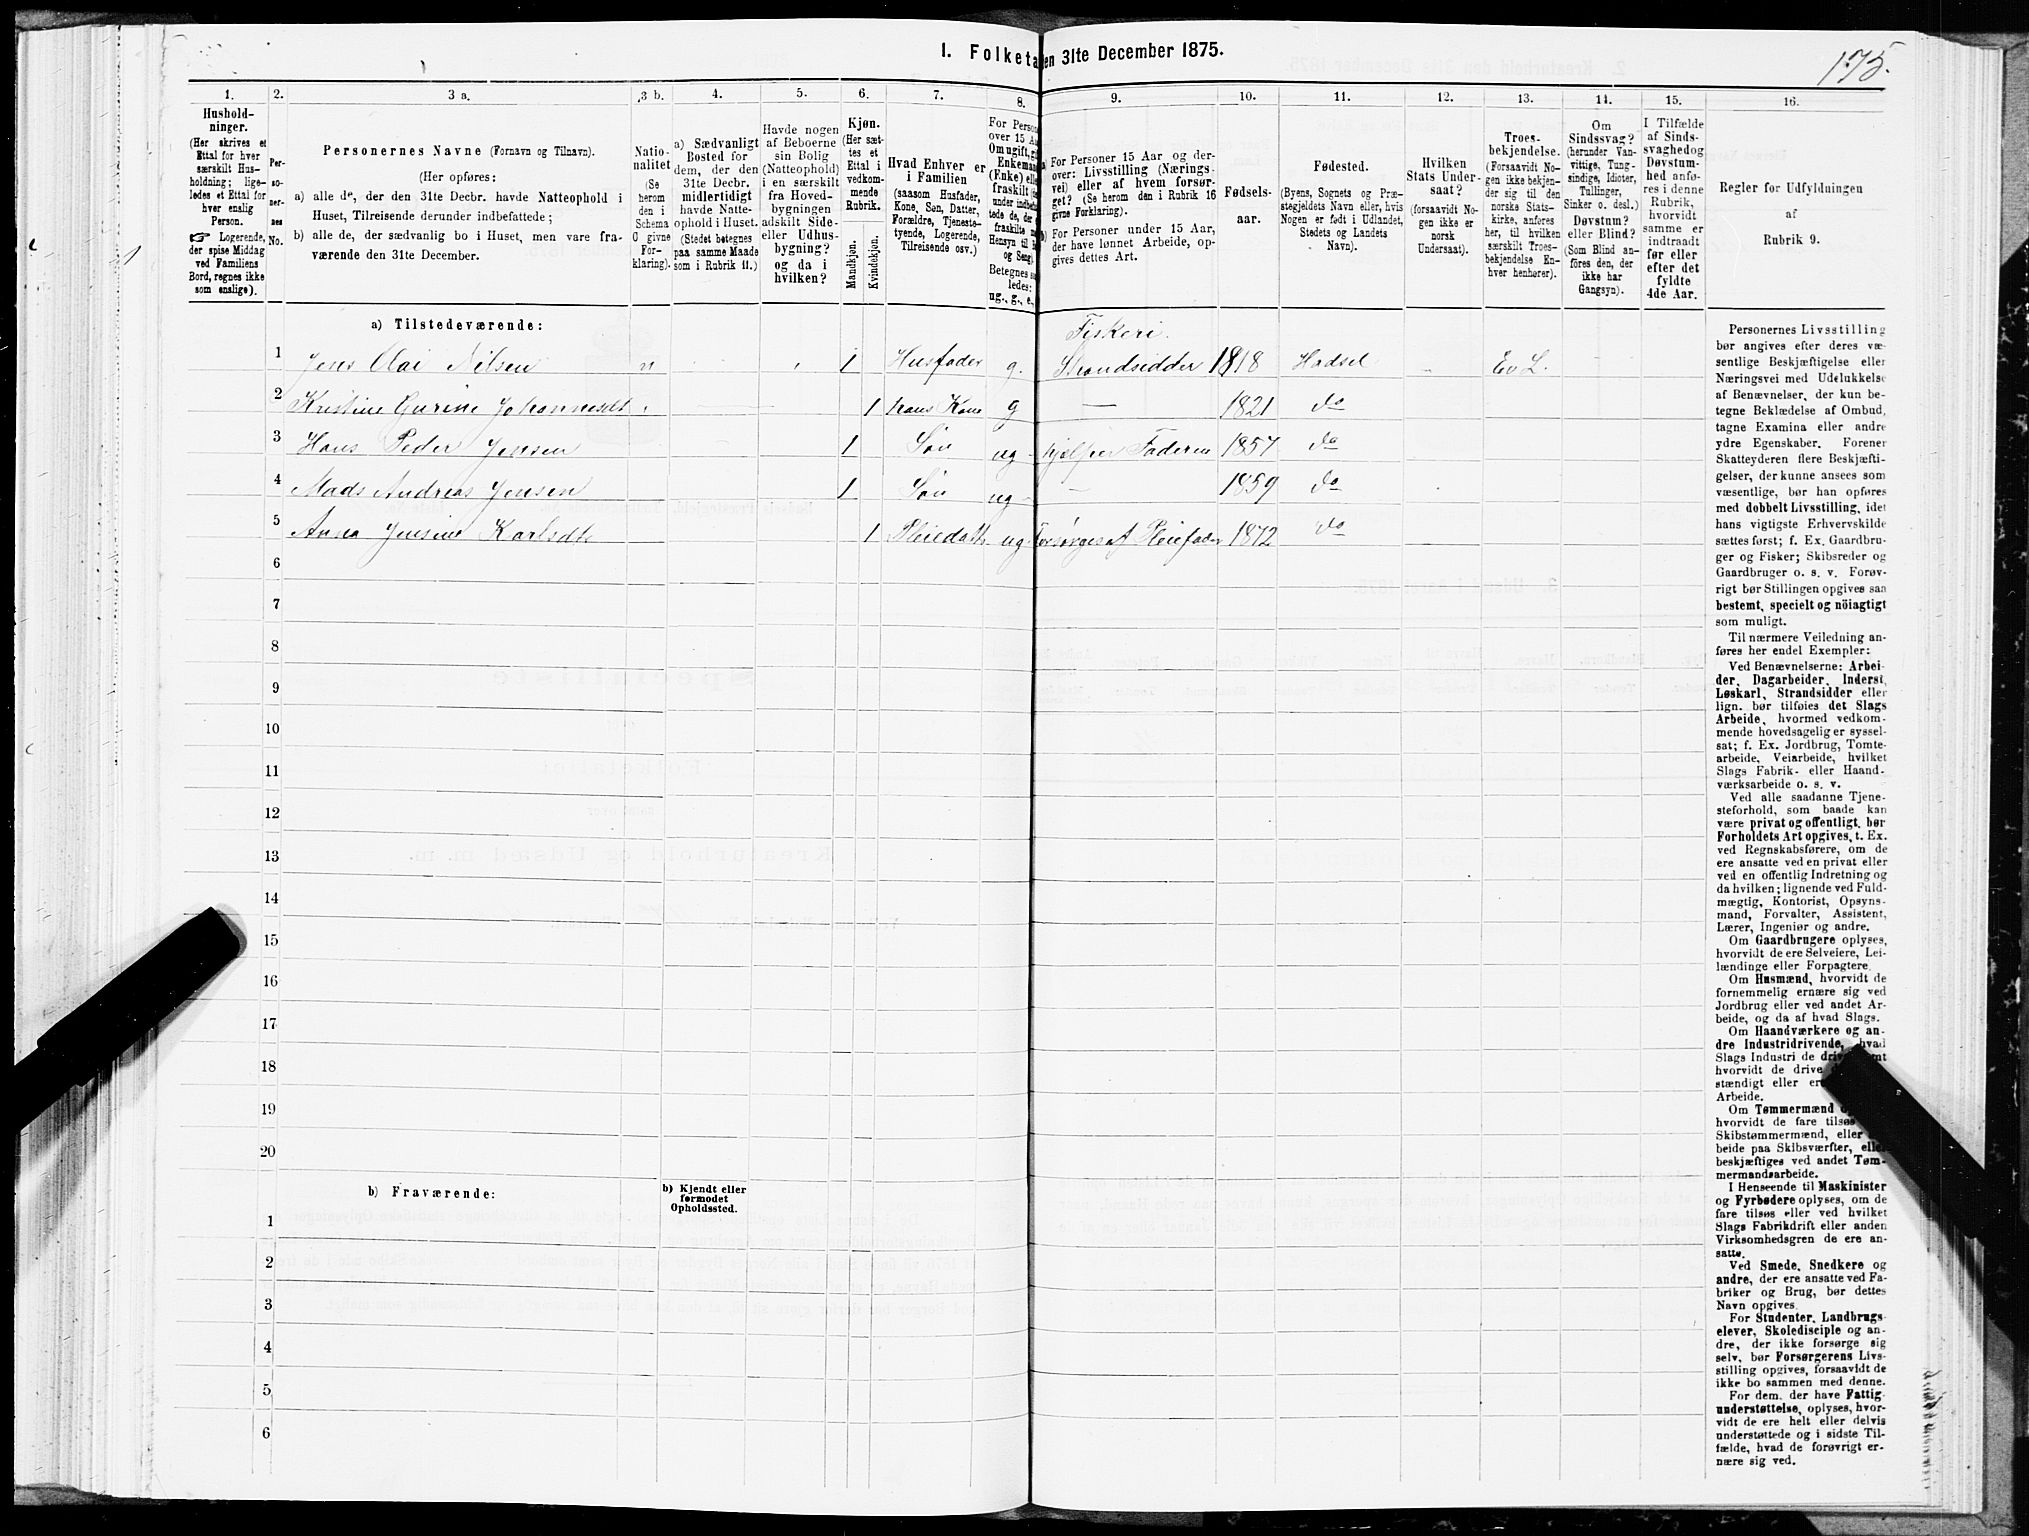 I. Folketa en 31te December 1875.
175.
1. 2. 3 a. 3 b. 4. 5. 6. 7. 8. 9. 10. 11. 12. 13. 14. 15. 16.
Hushold-
ninger.
(Her skrives et
Ettal for hver
særskilt Hus-
holdning; lige-
ledes et Ettal for
hver enslig
Person.
☞ Logerende,
der spise Middag
ved Familiens
Bord, regnes ikke
som enslige).
Per-
so-
ner-
nes
No.
Personernes Navne (Fornavn og Tilnavn).
(Her opføres:
a) alle de, der den 31te Decbr. havde Natteophold i
Huset, Tilreisende derunder indbefattede;
b) alle de, der sædvanlig bo i Huset, men vare fra-
værende den 31te December.
Natio-
nalitet
(Se
herom
den i
Schema
O givne
For-
klaring).
a) Sædvanligt
Bosted for
dem, der den
31te Decbr.
midlertidigt
havde Natte-
ophold i Huset.
(Stedet betegnes
paa samme Maade
som i Rubrik 11.)
Havde nogen
af Beboerne
sin Bolig
(Natteophold)
i en særskilt
fra Hoved-
bygningen
adskilt Side-
eller Udhus-
bygning?
og da i
hvilken?
Kjøn.
(Her sæt-
tes et
Ettal i
vedkom-
mende
Rubrik.
Mandkjøn.
Kvindekjøn.
Hvad Enhver er
i Familien
(saasom Husfader,
Kone, Søn, Datter,
Forældre, Tjeneste-
tyende, Logerende,
Tilreisende osv.)
For Person
over 15 Aa
Omugift, gi
Enkeman
(Enke) elle
fraskilt (he
under indbefat
tede de, der e
fraskilte m
Hensyn til B
og Seng).
Betegnes saa
ledes:
ug., g., e.,
a) For Personer 15 Aar og der-
over: Livsstilling (Nærings-
vei) eller af hvem forsør-
get? (Se herom den i Rubrik 16
givne Forklaring).
b) For Personer under 15 Aar,
der have lønnet Arbeide, op-
gives dettes Art.
Fødsels-
aar.
Fødested.
(Byens, Sognets og Præ-
stegjeldets Navn eller, hvis
Nogen er født i Udlandet,
Stedets og Landets
Navn).
Hvilken
Stats Under-
saat?
(forsaavidt No-
gen ikke er
norsk
Undersaat).
Troes-
bekjendelse.
(Forsaavidt No-
gen ikke bekjen-
der sig til den
norske Stats-
kirke, anføres
her, til hvilken
særskilt Troes-
bekjendelse En-
hver henhører).
Om
Sindssvag?
(herunder Van-
vittige, Tung-
sindige, Idioter,
Tullinger,
Sinker o. desl.)
Døvstum?
eller Blind?
(Som Blind an-
føres den, der
ikke har
Gangsyn).
I Tilfælde
af Sinds-
svaghed og
Døvstum-
hed anfø-
res i denne
Rubrik,
hvorvidt
samme er
indtraadt
før eller
efter det
fyldte
4de Aar.
Regler for Udfyldningen
af
Rubrik 9.
a) Tilstedeværende:
Fiskeri.
1 Jens Olai Nilsen n 1 Husfader g. Strandsidder 1818 Hadsel Ev L.
2 Kristine Gurine Johannesdt 1 hans Kone g — 1821 do
3 Hans Peder Jensen 1 Søn ug hjelper Faderen 1857 do
4 Mads Andreas Jensen 1 Søn ug — 1859 do
5 Anna Jensine Karlsdt 1 Pleiedatt. ug Forsørges af Pleiefader 1872 do
6
7
8
9
10
11
12
13
14
15
16
17
18
19
20
b) Fraværende:
b) Kjendt eller
formodet
Opholdssted.
1
2
3
4
5
6
Personernes Livsstilling
bør angives efter deres væ-
sentlige Beskjæftigelse eller
Næringsvei med Udelukkelse
af Benævnelser, der kun be-
tegne Beklædelse af Ombud,
tagne Examina eller andre
ydre Egenskaber. Forener
Skatteyderen flere Beskjæfti-
gelser, der kunne ansees som
væsentlige, bør han opføres
med dobbelt Livsstilling, idet
hans vigtigste Erhvervskilde
sættes først; f. Ex. Gaardbru-
ger og Fisker; Skibsreder og
Gaardbruger o. s. v. Forøv-
rigt bør Stillingen opgives saa
bestemt, specielt og nöiagtigt
som muligt.
Til nærmere Veiledning an-
føres her endel Exempler:
Ved Benævnelserne: Arbei-
der, Dagarbeider, Inderst,
Løskarl, Strandsidder eller
lign. bør tilføies det Slags
Arbeide, hvormed vedkom-
mende hovedsagelig er syssel-
sat; f. Ex. Jordbrug, Tomte-
arbeide, Veiarbeide, hvilket
Slags Fabrik- eller Haand-
værksarbeide o. s. v.
Ved alle saadanne Tjene-
steforhold, som baade kan
være privat og offentligt, bør
Forholdets Art opgives, t. Ex.
ved Regnskabsførere, om de
ere ansatte ved en privat eller
ved en offentlig Indretning og
da hvilken; lignende ved Fuld-
mægtig, Kontorist, Opsyns-
mand, Forvalter, Assistent,
Lærer, Ingeniør og andre.
Om Gaardbrugere oplyses,
hvorvidt de ere Selveiere, Lei-
lændinge eller Forpagtere.
Om Husmænd, hvorvidt de
fornemmelig ernære sig ved
Jordbrug eller ved andet Ar-
beide, og da af hvad Slags.
Om Haandværkere og an-
dre Industridrivende, hvad
Slags Industri de driv
hvorvidt de drive
stændigt eller er
Arbeide.
Om Tømmermænd
hvorvidt de fare tilsøs
Skibstømmermænd, eller
beide paa Skibsværfter, eller
beskjæftiges ved andet Tøm-
mermandsarbeide.
I Henseende til Maskinister
og Fyrbødere oplyses, om de
fare tilsøs eller ved hvilket
Slags Fabrikdrift eller anden
Virksomhedsgren de ere an-
satte.
Ved Smede, Snedkere og
andre, der ere ansatte ved Fa-
briker og Brug, bør dettes
Navn opgives.
For Studenter, Landbrugs-
elever, Skoledisciple og an-
dre, der ikke forsørge sig
selv, bør Forsørgerens Livs-
stilling opgives, forsaavidt de
ikke bo sammen med denne.
For dem, der have Fattig-
understøttelse, oplyses, hvor-
vidt de ere helt eller delvis
understøttede og i sidste Til-
fælde, hvad de forøvrigt er-
nære sig ved.